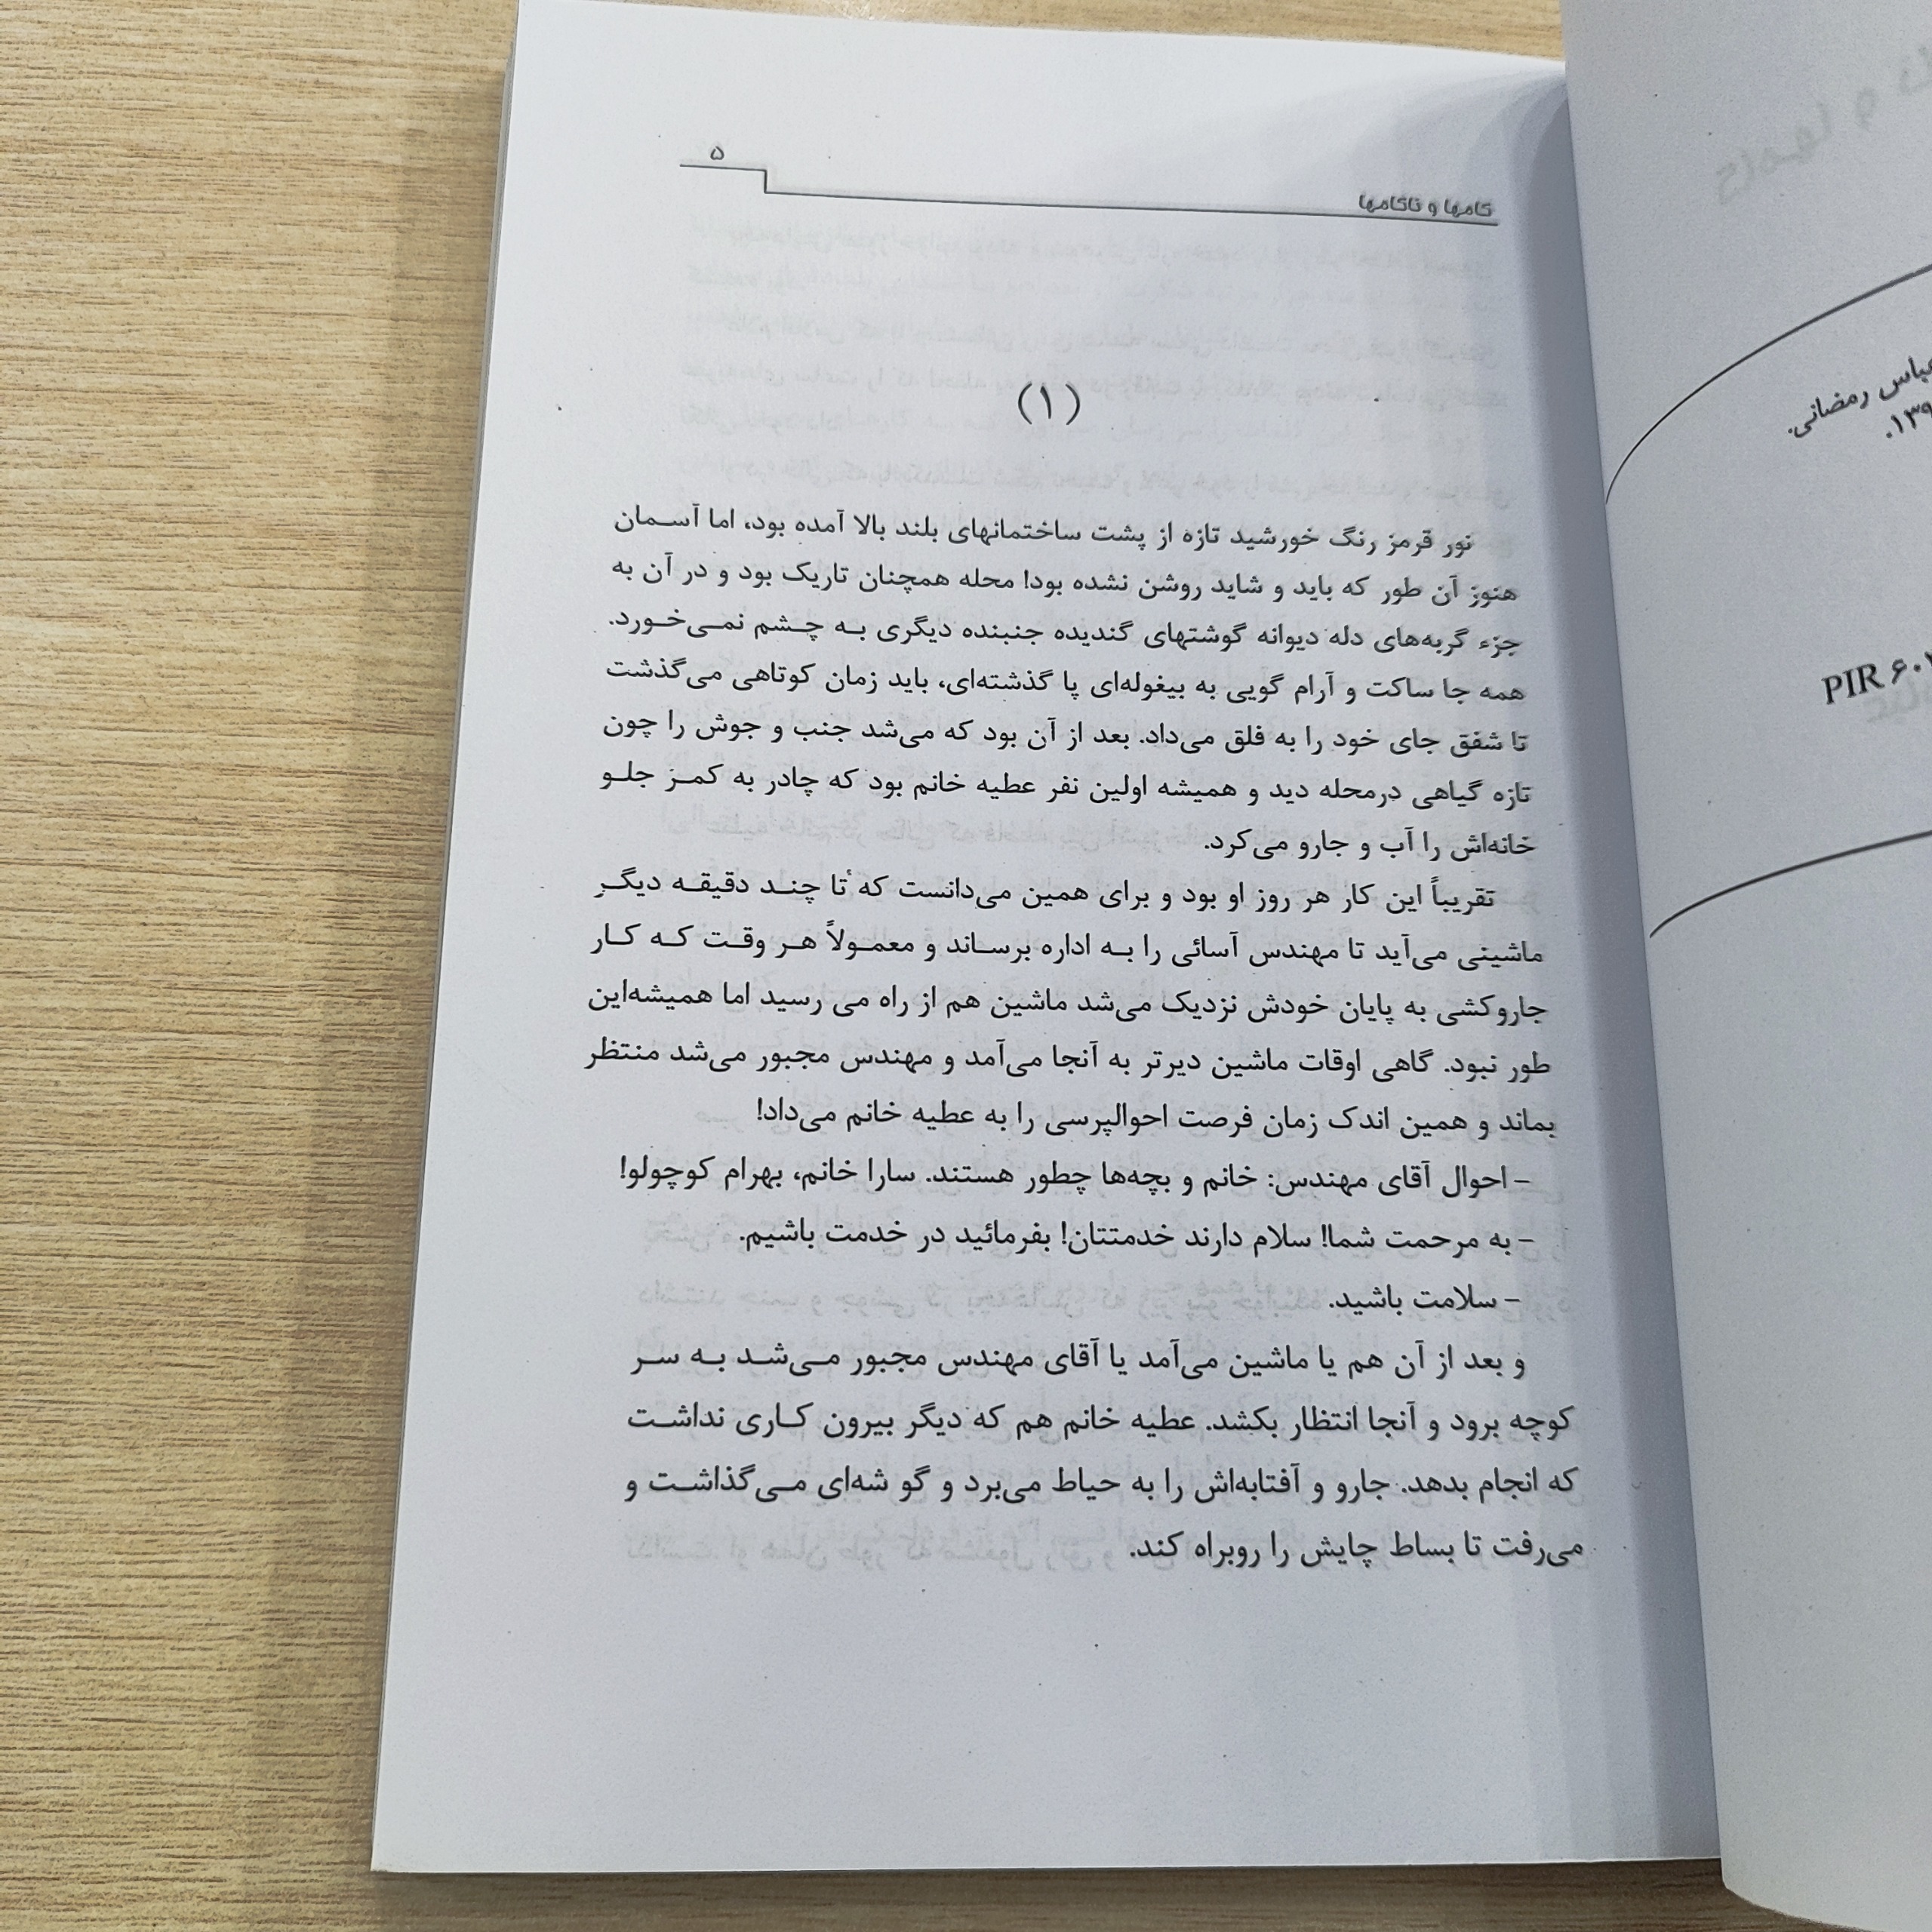 ۵
کامها و ناکامها
(۱)
نور قرمز رنگ خورشید تازه از پشت ساختمانهای بلند بالا آمده بود، اما آسمان
هنوز آن طور که باید و شاید روشن نشده بود! محله همچنان تاریک بود و در آن به
جزء گربه‌های دله دیوانه گوشتهای گندیده جنبنده دیگری به چشم نمی‌خورد.
همه جا ساکت و آرام گویی به بیغوله‌ای پا گذشته‌ای، باید زمان کوتاهی می‌گذشت
تا شفق جای خود را به فلق می‌داد. بعد از آن بود که می‌شد جنب و جوش را چون
تازه گیاهی درمحله دید و همیشه اولین نفر عطیه خانم بود که چادر به کمز جلو
خانه‌اش را آب و جارو می‌کرد.
تقریباً این کار هر روز او بود و برای همین می‌دانست که تا چند دقیقه دیگر
ماشینی می‌آید تا مهندس آسائی را به اداره برساند و معمولاً هر وقت که کار
جاروکشی به پایان خودش نزدیک می‌شد ماشین هم از راه می رسید اما همیشه‌این
طور نبود. گاهی اوقات ماشین دیرتر به آنجا می‌آمد و مهندس مجبور می‌شد منتظر
بماند و همین اندک زمان فرصت احوالپرسی را به عطیه خانم می‌داد!
- احوال آقای مهندس: خانم و بچه‌ها چطور هستند. سارا خانم، بهرام کوچولو!
- به مرحمت شما! سلام دارند خدمتتان! بفرمائید در خدمت باشیم.
- سلامت باشید.
و بعد از آن هم یا ماشین می‌آمد یا آقای مهندس مجبور می‌شد به سر
کوچه برود و آنجا انتظار بکشد. عطیه خانم هم که دیگر بیرون کاری نداشت
که انجام بدهد. جارو و آفتابه‌اش را به حیاط می‌برد و گو شه‌ای می‌گذاشت و
می‌رفت تا بساط چایش را روبراه کند.
عباس رمضانی.
PIR